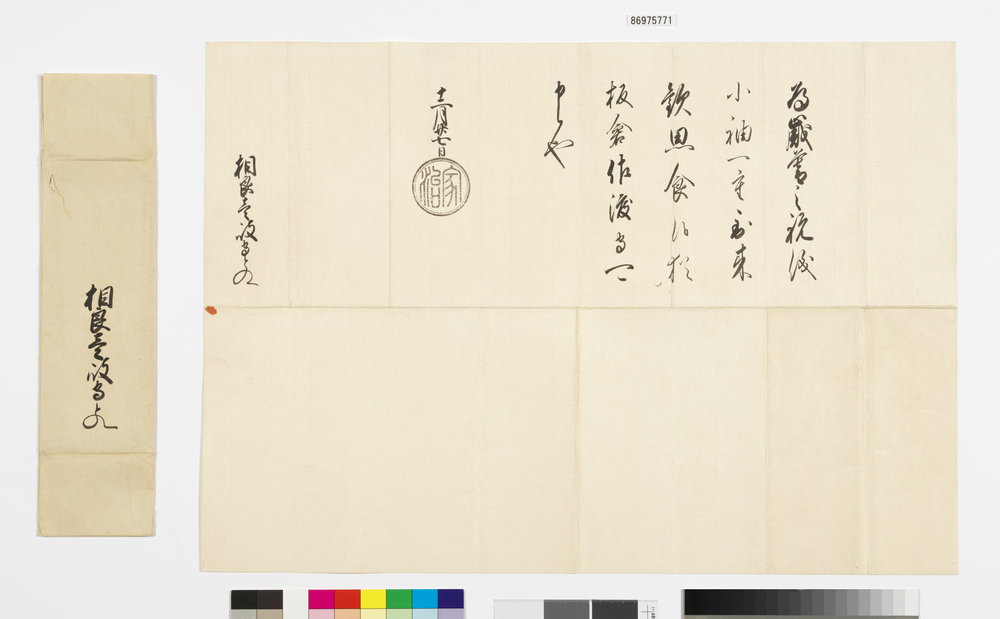 86975771
為歳暮之祝儀
小袖一重到来
歓思食候猶
板倉佐渡守可
申候也
十二月廿七日
家治
相良壱岐守とのへ
相良壱岐守とのへ